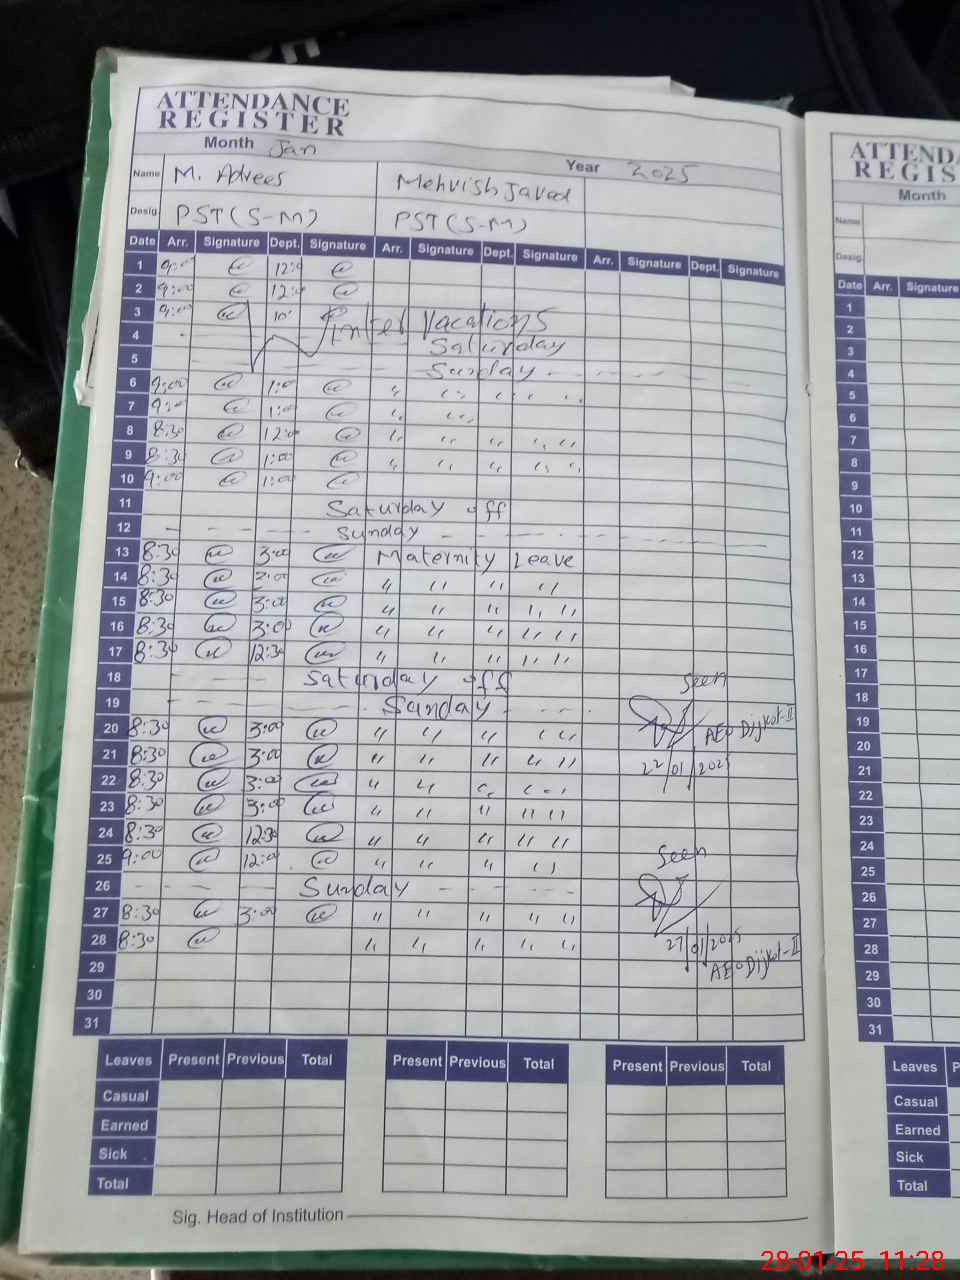 ATTENDANCE
REGISTER
Month Jan
Year 2025
Name M. Adrees Mehvish Javed
Desig. PST (S-M) PST (S-M)
Date Arr. Signature Dept. Signature Arr. Signature Dept. Signature Arr. Signature Dept. Signature
1 9:00 12:0
2 9:00 12:0
3 9:00 10 Vacations
4 Saturday
5 Sunday
6 9:00 1:0 " " " " "
7 9:00 1:00 " "
8 8:30 12:0 " " " " "
9 8:30 1:00 " " " " "
10 9:00 1:00
11 Saturday off
12 Sunday
13 8:30 3:00 Maternity Leave
14 8:30 " " " "
15 8:30 3:00 " " " " "
16 8:30 3:00 " " " " "
17 8:30 12:30 " " " " "
18 Saturday off
Seen
19 Sunday
20 8:30 3:00 " " " " "
AEO Dijkot-II
21 8:30 3:00 " " " " "
22/01/2025
22 8:30 3:00 " " " " "
23 8:30 3:00 " " " " "
24 8:30 12:30 " " " " "
25 9:00 12:00 " " " "
Seen
26 Sunday
27 8:30 3:00 " " " " "
28 8:30 " " " " "
27/01/2025
AEO Dijkot-II
29
30
31
Leaves Present Previous Total Present Previous Total Present Previous Total
Casual
Earned
Sick
Total
Sig. Head of Institution
ATTENDA
REGIS
Month
Name
Desig.
Date Arr. Signature
1
2
3
4
5
6
7
8
9
10
11
12
13
14
15
16
17
18
19
20
21
22
23
24
25
26
27
28
29
30
31
Leaves P
Casual
Earned
Sick
Total
28-01-25 11:28